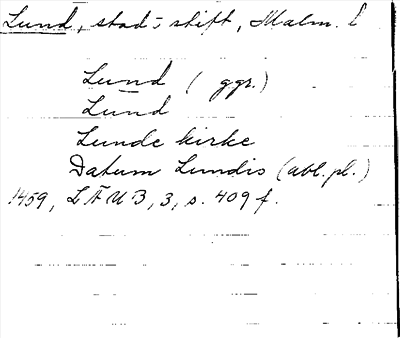 Lund, stad o. stift, Malm. l
Lund ( ggr.)
Lund
Lunde kirke
Datum Lundis (abl. pl.)
1459, LÄUB, 3, s. 409 f.